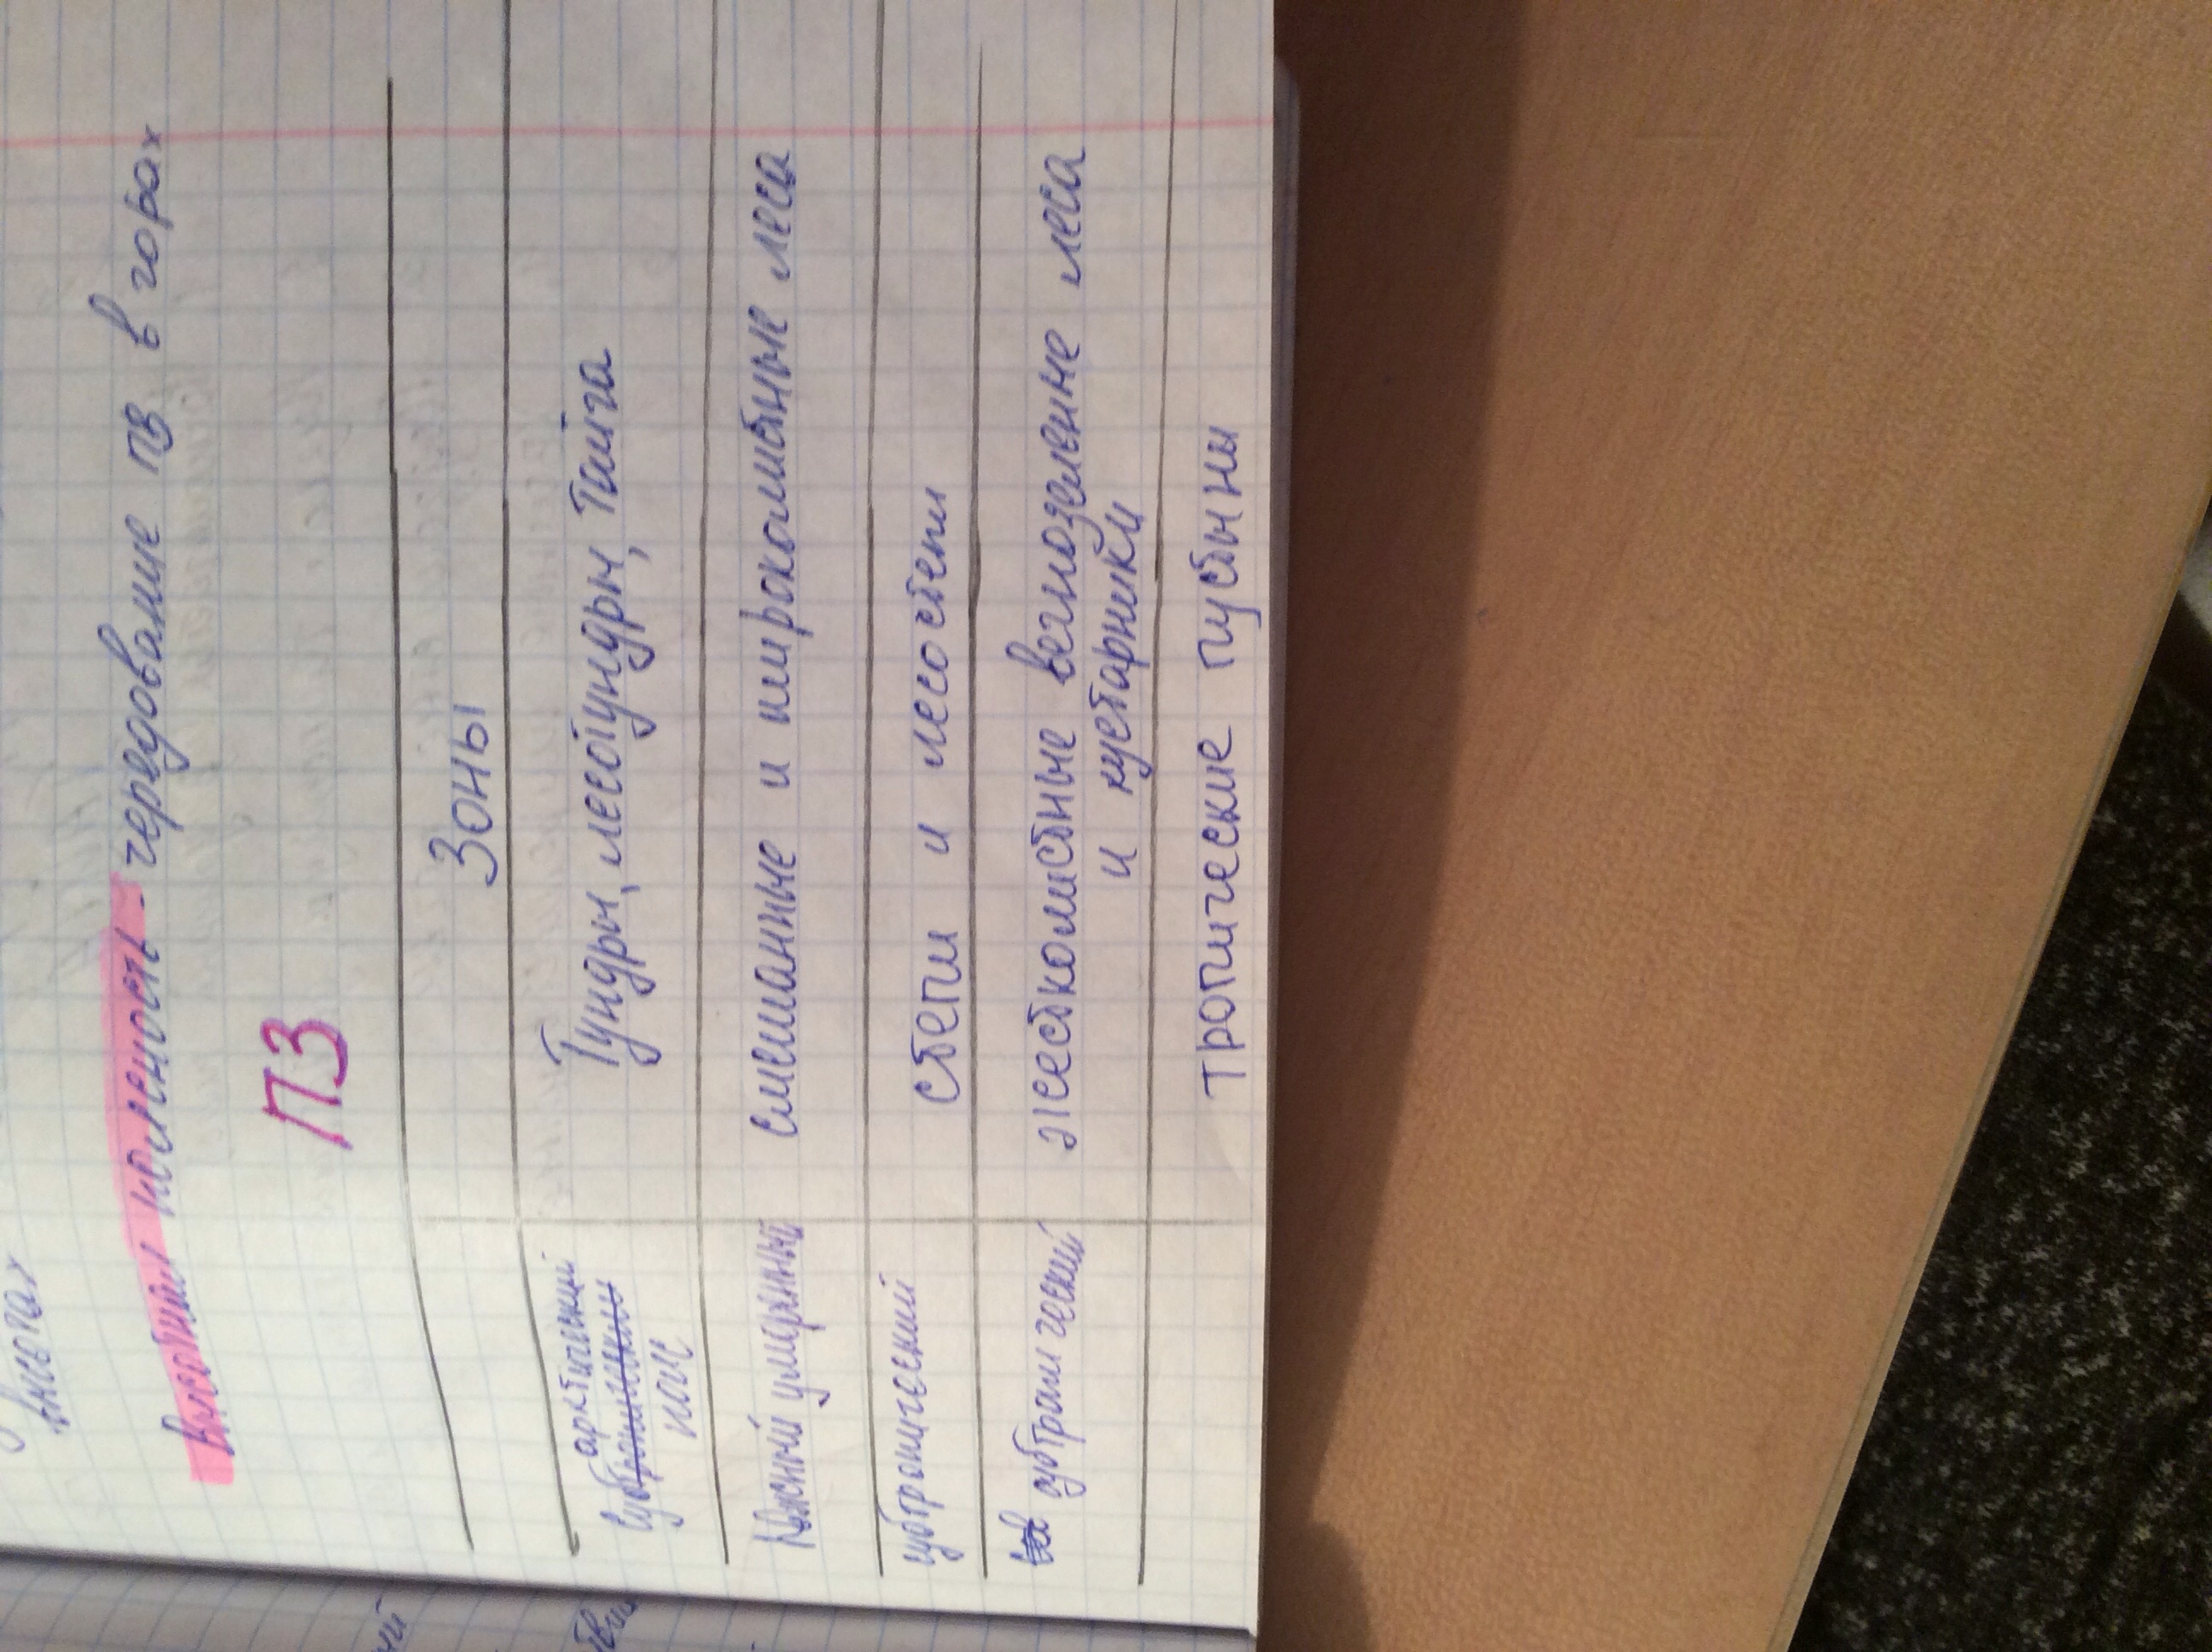 высотах
Высотная поясность - чередование ПЗ в горах
ПЗ
Зоны
арктический
Тундры, лесотундры, Тайга
пояс
Южный умеренный смешанные и широколистные леса
субтропический степи и лесостепи
субтропический жестколистные вечнозеление леса
и кустарники
тропические пустыны